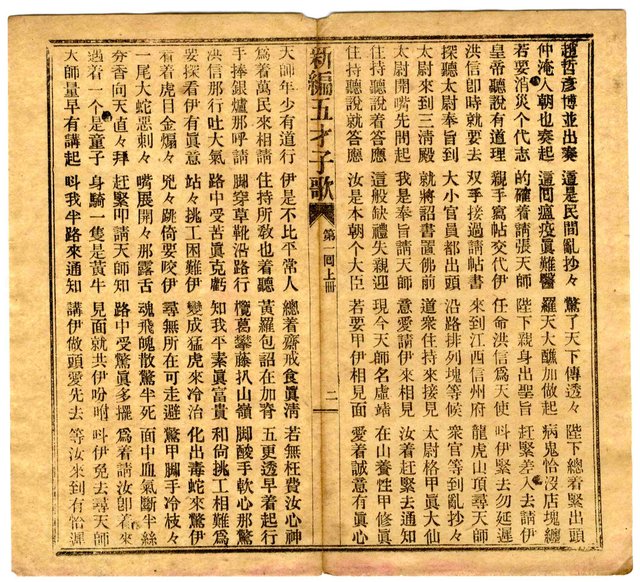 趙哲彥博並出奏 道是民間亂抄々 驚了天下傳透々 陛下總着緊出頭
仲淹入朝也奏起 這囘瘟疫眞難醫 羅天大醮加做起 病鬼恰沒店塊纏
若要消災个代志 的確着請張天師 陛下親身出聖旨 赶緊差入去請伊
皇帝聽說有道理 親手寫帖交代伊 任命洪信爲天使 呌伊緊去勿延遲
洪信卽時就要去 双手接過請帖書 來到江西信州府 龍虎山頂尋天師
探聽太尉奉旨到 大小官員都出頭 沿路排列塊等候 衆官等到亂抄々
太尉來到三淸殿 就將詔書置佛前 道衆住持來接見 太尉格甲眞大仙
太尉開嘴先問起 我是奉旨請天師 意愛請伊來相見 汝着赶緊去通知
住持聽說着答應 這般缺禮失親迎 現今天師名虛靖 在山養性甲修眞
住持聽說就答應 說是本朝个大臣 若要甲伊相見面 愛着誠意有眞心
新編五才子歌 第一回上冊 二
天師年少有道行 伊是不比平常人 總着齋戒食眞淸 若無枉費汝心神
爲着萬民來相請 住持所敎也着聽 黃羅包詔在加脊 五更透早着起行
手捧銀爐那呼請 脚穿草靴沿路行 欖葛攀藤扒山嶺 脚酸手軟心那驚
洪信那行吐大氣 路中受苦眞克虧 知我平素眞富貴 和尙挑工相難爲
要探看伊有眞意 站々挑工困難伊 變成猛虎來冷治 化出毒蛇來驚伊
看着虎目金熖々 兇々跳倚要咬伊 尋無所在可走避 驚甲脚手冷枝々
一尾大蛇惡刺々 嘴展開々那露舌 魂飛魄散驚半死 面中血氣斷半絲
夯香向天直々拜 赶緊叩請天師知 路中受驚眞多擺 爲着請汝卽着來
遇着一个是童子 身騎一隻是黃牛 見面就共伊吩咐 呌伊免去尋天師
大師量早有講起 呌我半路來通知 講伊做頭愛先去 等汝來到有恰遲